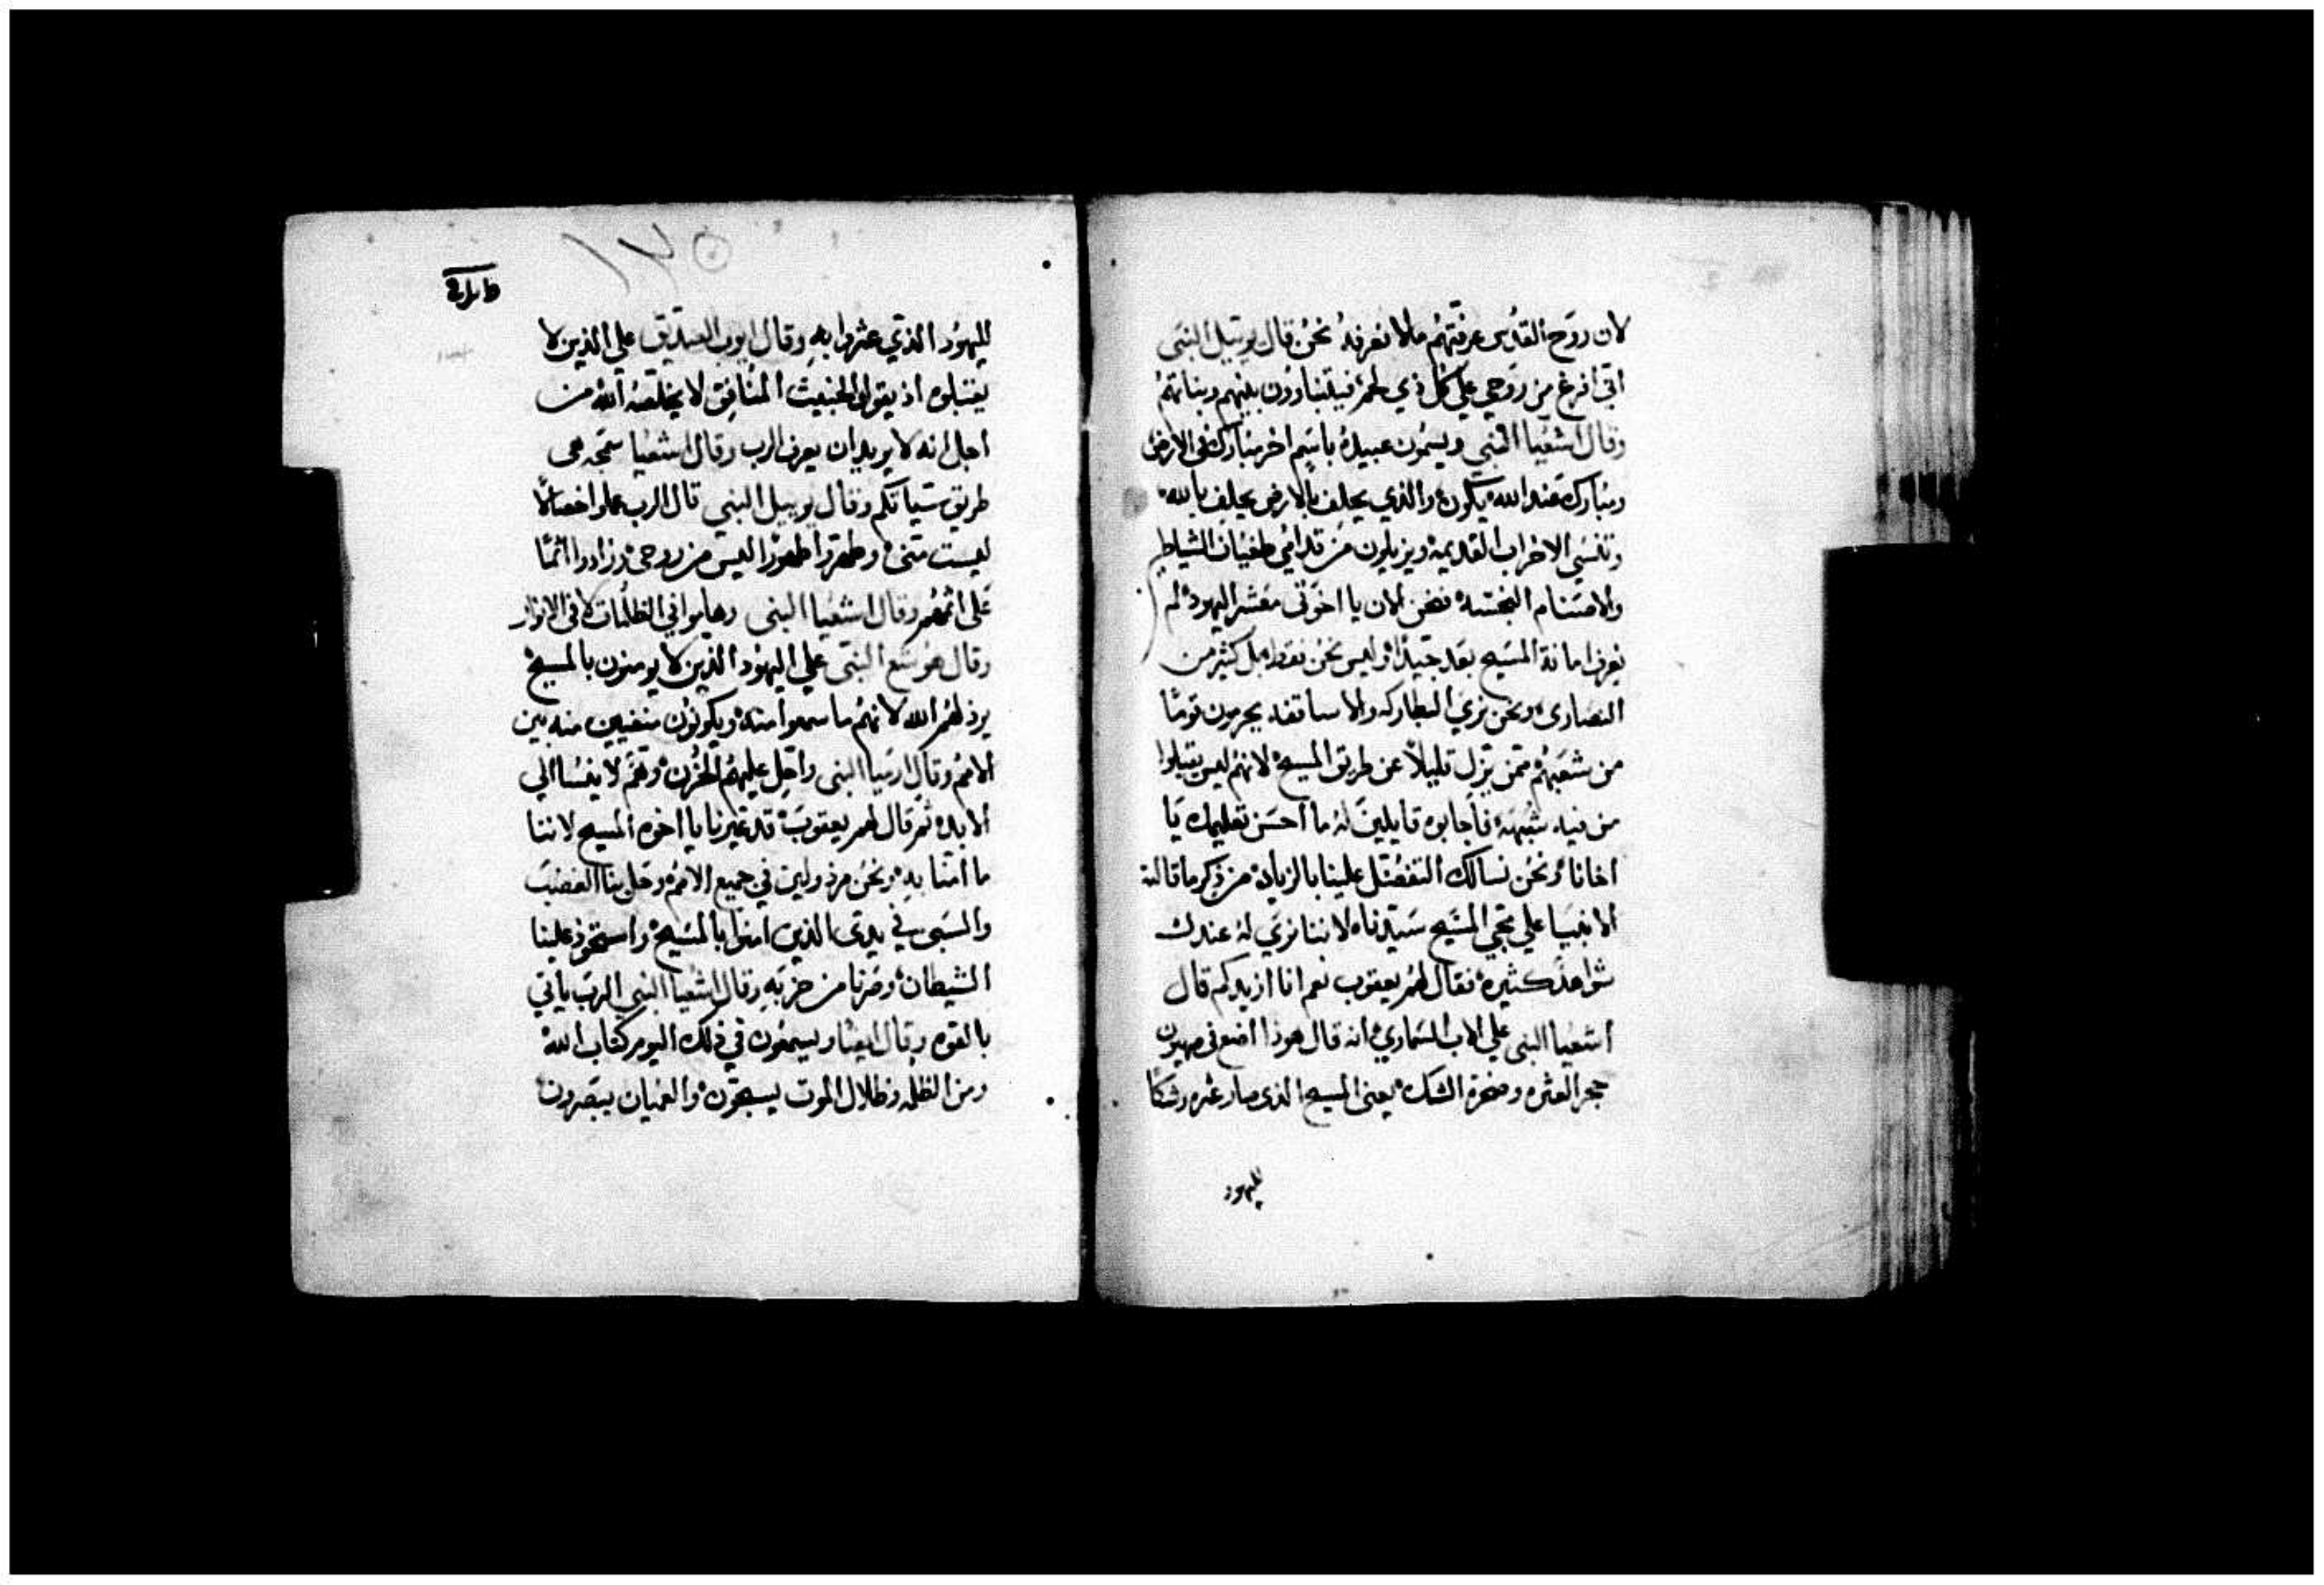 لان روح القدس عرفتهم مالا نعرفه نحن قال يوييل النبي
اني افرغ من روحي علي كل ذي لحم فيتنباوون بنيهم وبناتهم
وقال اشعيا النبي ويسمون عبيده باسم اخر مبارك في الارض
ومبارك عند الله يكون والذي يحلف بالارض يحلف بالله
وتنسي الاحزاب القديمه ويزيلون من قدامي طغيان الشياطين
والاصنام النجسه فنحن الان يا اخوتي معشر اليهود لم
نعرف امانة المسيح بعد جيدا وليس نحن فقط بل كثير من
النصارى ونحن نري البطاركه والاساقفه يحرمون قوما
من شعبهم ممن يزل قليلا عن طريق المسيح لانهم ليس يقبلوا
من فيه شبهه فاجابوه قايلين له ما احسن تعليمك يا
اخانا ونحن نسالك التفضل علينا بالزياده من ذكر ما قالته
الانبيا علي مجي المسيح سيدنا لاننا نري له عندك
شواهد كثيره فقال لهم يعقوب نعم انا ازيدكم قال
اشعيا النبي علي الاب السماوي انه قال هوذا اضع في صهيون
حجر العثره وصخرة الشك يعني المسيح الذى صار عثره وشكا
لليهود
١٢٥
لليهود الذي عثروا به وقال ايوب الصديق علي الذين لا
يقبلوه اذ يقول الخبيث المنافق لا يخلصه الله من
اجل انه لا يريد ان يعرف الرب وقال اشعيا
طريق سياتكم وقال يوييل النبي قال الرب عملوا
ليست مني وطهروا طهورا ليس من روحي وزادوا اثما
على اثمهم وقال اشعيا النبي وهاموا في الظلمات لا في الانوار
وقال هوشع النبي علي اليهود الذين لا يومنون بالمسيح
يرذلهم الله لانهم ما سمعوا منه ويكونون منفيين منه بين
الامم وقال ارميا النبي واحل عليهم الحزن وهم لا ينسا الي
الابد ثم قال لهم يعقوب قد عيرنا يا اخوه المسيح لاننا
ما امنا به ونحن مرذولين في جميع الامم وحل بنا الغضب
والسبى في يدي الذين امنوا بالمسيح واستحوذ علينا
الشيطان وصرنا من حزبه وقال اشعيا النبي الرب ياتي
بالقوه وقال ايضا ويسمعون في ذلك اليوم كتاب الله
ومن الظلمه وظلال الموت والعميان يبصرون